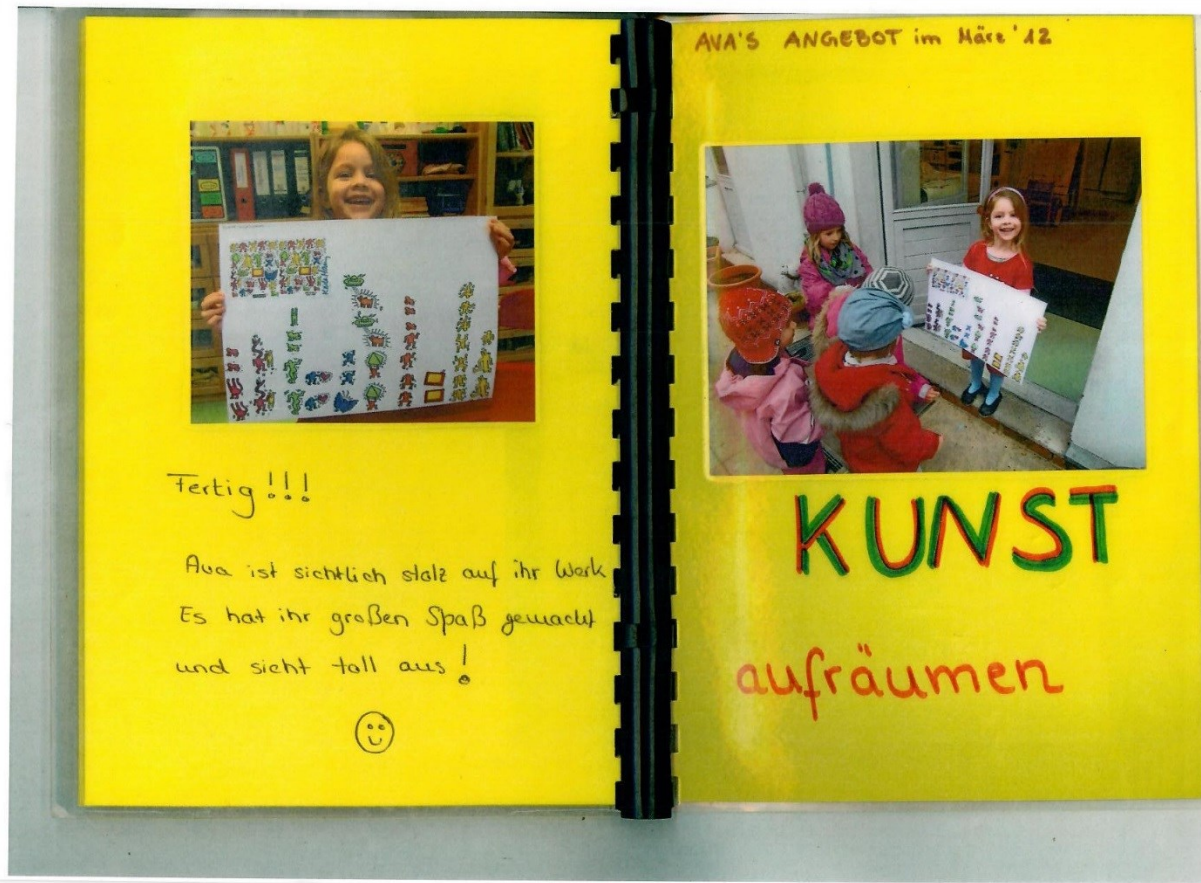 Fertig!!!
Ava ist sichtlich stolz auf ihr Werk
Es hat ihr großen Spaß gemacht
und sieht toll aus!
AVA'S ANGEBOT im März '12
KUNST
aufräumen